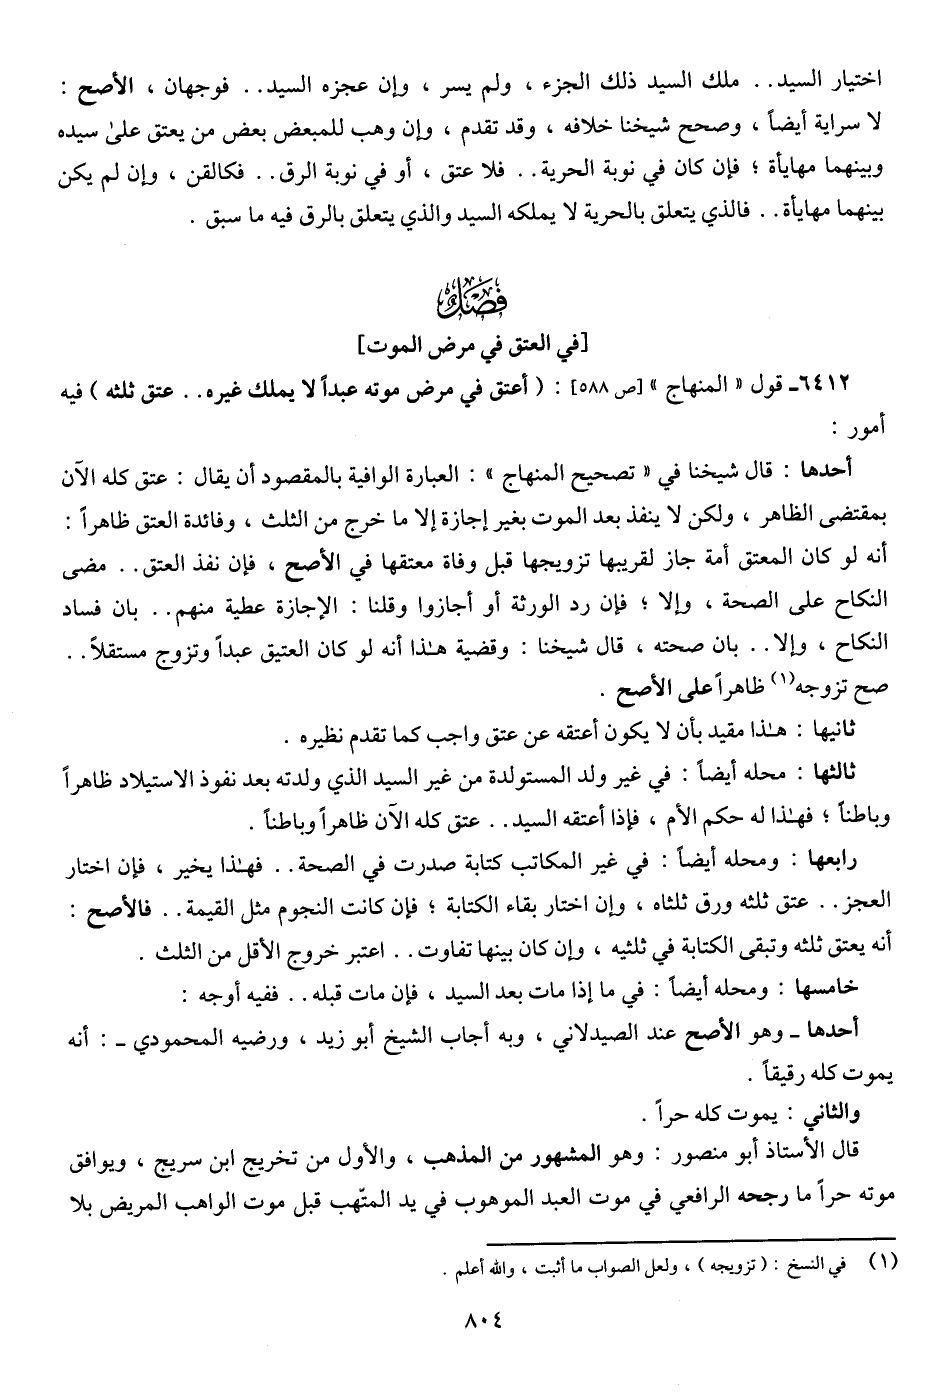 اختيار السيد.. ملك السيد ذلك الجزء ، ولم يسر ، وإن عجزه السيد.. فوجهان ، الأصح :
لا سراية أيضاً ، وصحح شيخنا خلافه ، وقد تقدم ، وإن وهب للمبعض بعض من يعتق علىٰ سيده
وبينهما مهايأة ؛ فإن كان في نوبة الحرية.. فلا عتق ، أو في نوبة الرق.. فكالقن ، وإن لم يكن
بينهما مهايأة.. فالذي يتعلق بالحرية لا يملكه السيد والذي يتعلق بالرق فيه ما سبق .
فصل
[في العتق في مرض الموت]
٦٤١٢ـ قول « المنهاج » [ص ٥٨٨] : ( أعتق في مرض موته عبداً لا يملك غيره.. عتق ثلثه ) فيه
أمور :
أحدها : قال شيخنا في « تصحيح المنهاج » : العبارة الوافية بالمقصود أن يقال : عتق كله الآن
بمقتضى الظاهر ، ولكن لا ينفذ بعد الموت بغير إجازة إلا ما خرج من الثلث ، وفائدة العتق ظاهراً :
أنه لو كان المعتق أمة جاز لقريبها تزويجها قبل وفاة معتقها في الأصح ، فإن نفذ العتق.. مضى
النكاح على الصحة ، وإلا ؛ فإن رد الورثة أو أجازوا وقلنا : الإجازة عطية منهم.. بان فساد
النكاح ، وإلا.. بان صحته ، قال شيخنا : وقضية هـٰذا أنه لو كان العتيق عبداً وتزوج مستقلاً..
صح تزوجه(١) ظاهراً على الأصح .
ثانيها : هـٰذا مقيد بأن لا يكون أعتقه عن عتق واجب كما تقدم نظيره .
ثالثها : محله أيضاً : في غير ولد المستولدة من غير السيد الذي ولدته بعد نفوذ الاستيلاد ظاهراً
وباطناً ؛ فهـٰذا له حكم الأم ، فإذا أعتقه السيد.. عتق كله الآن ظاهراً وباطناً .
رابعها : ومحله أيضاً : في غير المكاتب كتابة صدرت في الصحة.. فهـٰذا يخير ، فإن اختار
العجز.. عتق ثلثه ورق ثلثاه ، وإن اختار بقاء الكتابة ؛ فإن كانت النجوم مثل القيمة.. فالأصح :
أنه يعتق ثلثه وتبقى الكتابة في ثلثيه ، وإن كان بينها تفاوت.. اعتبر خروج الأقل من الثلث .
خامسها : ومحله أيضاً : في ما إذا مات بعد السيد ، فإن مات قبله.. ففيه أوجه :
أحدها ـ وهو الأصح عند الصيدلاني ، وبه أجاب الشيخ أبو زيد ، ورضيه المحمودي ـ : أنه
يموت كله رقيقاً .
والثاني : يموت كله حراً .
قال الأستاذ أبو منصور : وهو المشهور من المذهب ، والأول من تخريج ابن سريج ، ويوافق
موته حراً ما رجحه الرافعي في موت العبد الموهوب في يد المتّهب قبل موت الواهب المريض بلا
(١) في النسخ : ( تزويجه ) ، ولعل الصواب ما أثبت ، والله أعلم .
٨٠٤